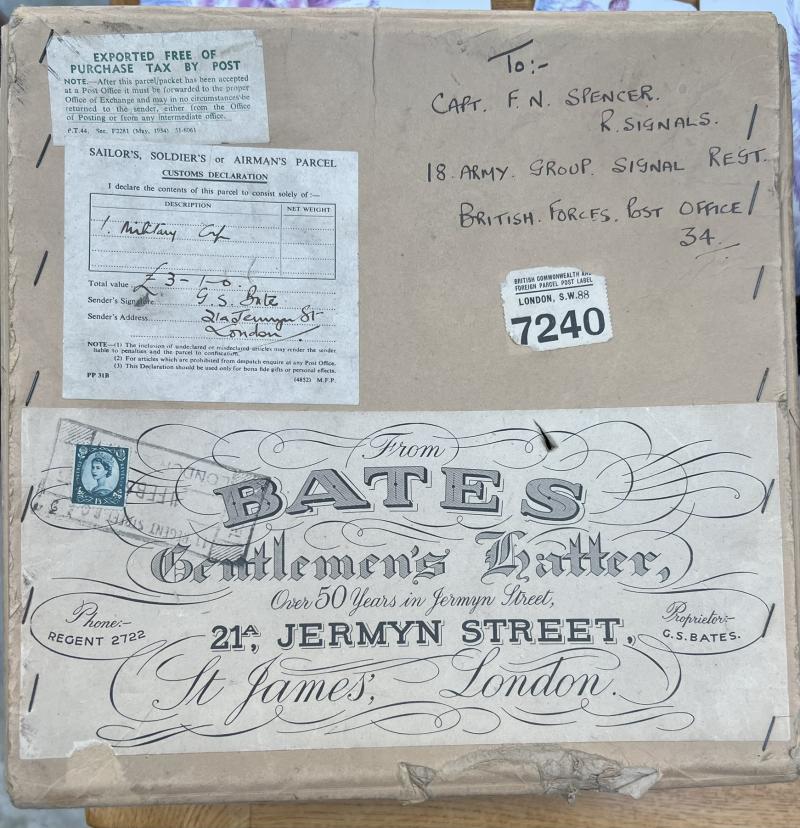 EXPORTED FREE OF
PURCHASE TAX BY POST
NOTE.—After this parcel/packet has been accepted
at a Post Office it must be forwarded to the proper
Office of Exchange and may in no circumstances be
returned to the sender, either from the Office
of Posting or from any intermediate office.
P.T.44. Sec. F2281 (May, 1954) 51-8061
To:-
CAPT. F. N. SPENCER.
R. SIGNALS.
18. ARMY. GROUP. SIGNAL REGT.
BRITISH. FORCES. POST OFFICE
34.
SAILOR'S, SOLDIER'S or AIRMAN'S PARCEL
CUSTOMS DECLARATION
I declare the contents of this parcel to consist solely of :—
DESCRIPTION NET WEIGHT
1. Military Cap
Total value £3-1-0.
Sender's Signature. G. S. Bates
Sender's Address. 21a Jermyn St
London
NOTE—(1) The inclusion of undeclared or misdeclared articles may render the sender
liable to penalties and the parcel to confiscation.
(2) For articles which are prohibited from despatch enquire at any Post Office.
(3) This Declaration should be used only for bona fide gifts or personal effects.
PP 31B (4852) M.F.P.
BRITISH COMMONWEALTH AND
FOREIGN PARCEL POST LABEL
LONDON, S.W.88
7240
From
BATES
Gentlemen's Hatter,
Over 50 Years in Jermyn Street,
Phone:-
REGENT 2722
21A, JERMYN STREET,
Proprietor:-
G.S.BATES.
St James', London.